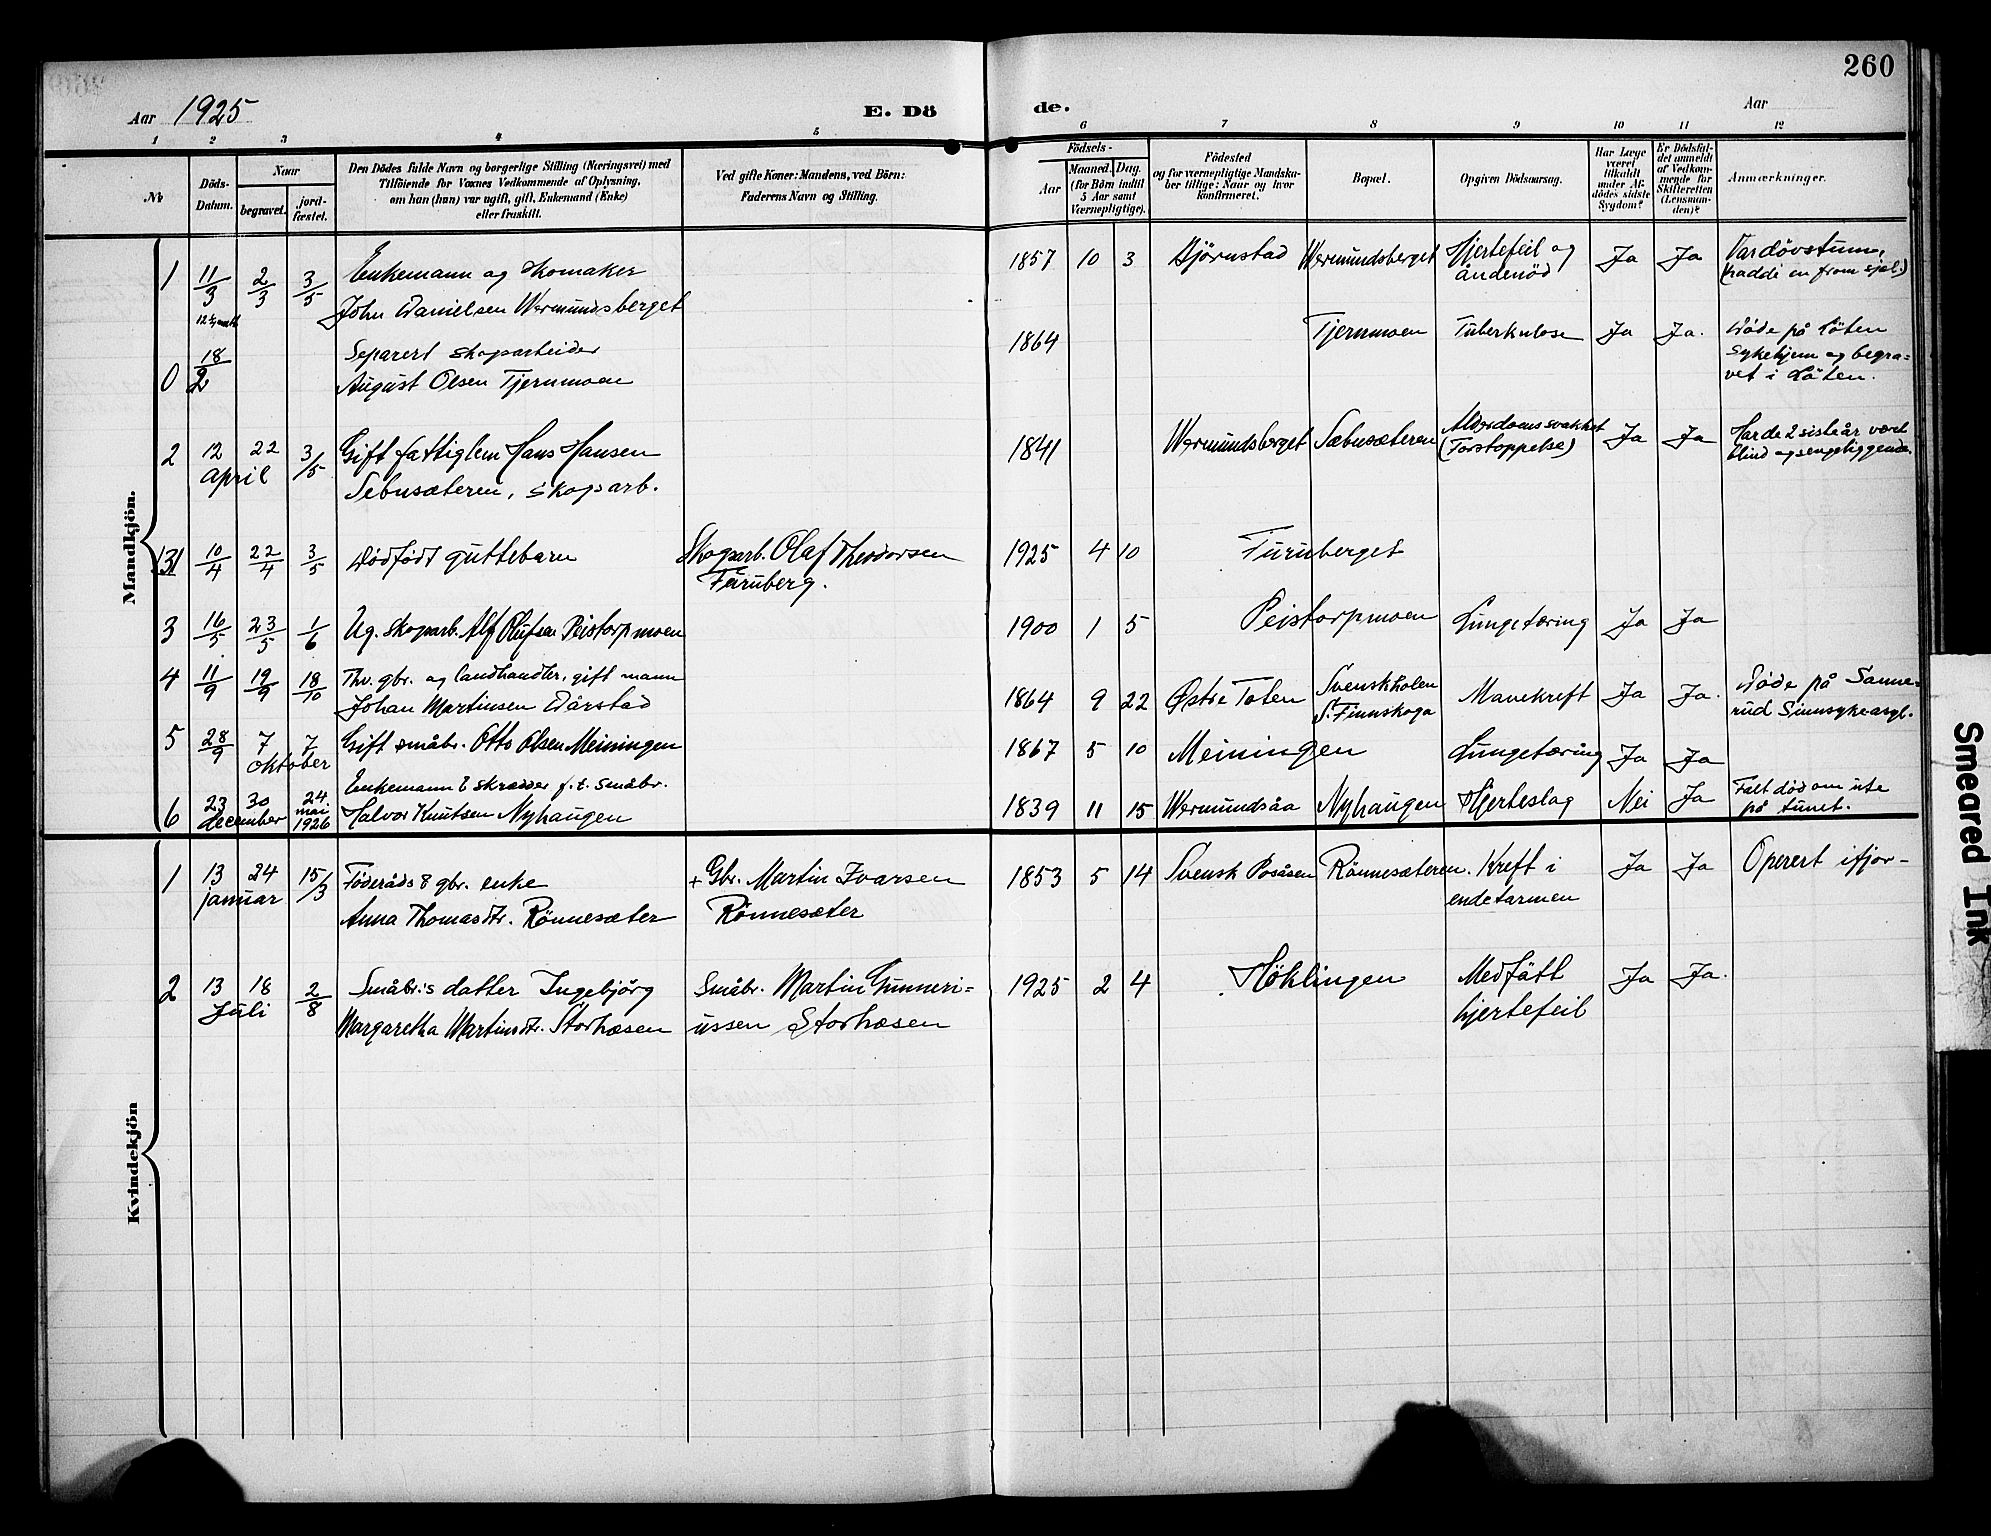 260
Aar 1925
E. Dö
de.
Aar
1 2 3 4 5 6 7 8 9 10 11 12
No
Döds-
Datum.
Naar
begravet.
jord-
fæstet.
Den Dödes fulde Navn og borgerlige Stilling (Næringsvei) med
Tilföiende for Voxnes Vedkommende af Oplysning,
om han (hun) var ugift, gift, Enkemand (Enke)
eller fraskilt.
Ved gifte Koner: Mandens, ved Börn:
Faderens Navn og Stilling.
Födsels-
Aar
Maaned. Dag.
(for Börn indtil
5 Aar samt
Værnepligtige).
Födested
og for værnepligtige Mandska-
ber tillige: Naar og hvor
konfirmeret.
Bopæl.
Opgiven Dödsaarsag.
Har Læge
været
tilkaldt
under Af-
dödes sidste
Sygdom?
Er Dödsfal-
det anmeldt
af Vedkom-
mende for
Skifteretten
(Lensman-
den)?
Anmærkninger.
Mandkjön.
1 11/3 2/3 3/5 Enkemann og skomaker
John Danielsen Wermundsberget
1857 10 3 Björnstad Wermundsberget Hjertefeil og
åndenöd
Ja Ja Var dövstum,
(hadde en from sjel.)
0 18/2 Separert skogarbeider
August Olsen Tjernmoen
1864 Tjernmoen Tuberkulose Ja Ja. Döde på Löten
sykehjem og begra-
vet i Löten.
2 12 22 3/5 Gift fattiglem Hans Hansen
april
Sebusæteren, skogsarb.
1841 Wermundsberget Sæbusæteren Alderdomssvakhet
(Forstoppelse)
Ja Ja Har de 2 siste år vært
blind og sengeliggende.
131 10/4 22/4 3/5 Dödfödt guttebarn Skogsarb. Olaf Theodorsen
Furuberg.
1925 4 10 Furuberget
3 16/5 23/5 1/6 Ug. skogsarb. Alf Olufsen Peistorpmoen
1900 1 5 Peistorpmoen Lungetæring Ja Ja
4 11/9 19/9 18/10 Thv. gbr. og landhandler, gift mann
Johan Martinsen Dårstad
1864 9 22 Østre Toten Svenskholen
S. Finnskoga
Mavekreft Ja Ja. Döde på Sanne-
rud Sinnsykeasyl.
5 28/9 7 7 Gift småbr. Otto Olsen Meiningen
oktober
1867 5 10 Meiningen Lungetæring Ja Ja
6 23 30 24 Enkemann & skrædder f. t. småbr.
december mai
1926 Halvor Knutsen Nyhaugen
1839 11 15 Wermundsåa Nyhaugen Hjerteslag Nei Ja Falt död om ute
på tunet.
Kvindekjön
1 13 24 15/3 Föderåds & gbr. enke + Gbr. Martin Ivarsen
januar
Anna Thomasdtr. Rönnesæter Rönnesæter
1853 5 14 Svensk Posåsen Rönnesæteren. Kreft i
endetarmen
Ja Ja Operert ifjor-
2 13 18 2/8 Småbr.'s datter Ingebjörg Småbr. Martin Gunneri-
Juli
Margaretha Martinsdtr. Storhæsen ussen Storhæsen
1925 2 4 Höklingen Medfått
hjertefeil
Ja Ja.
Smeared Ink